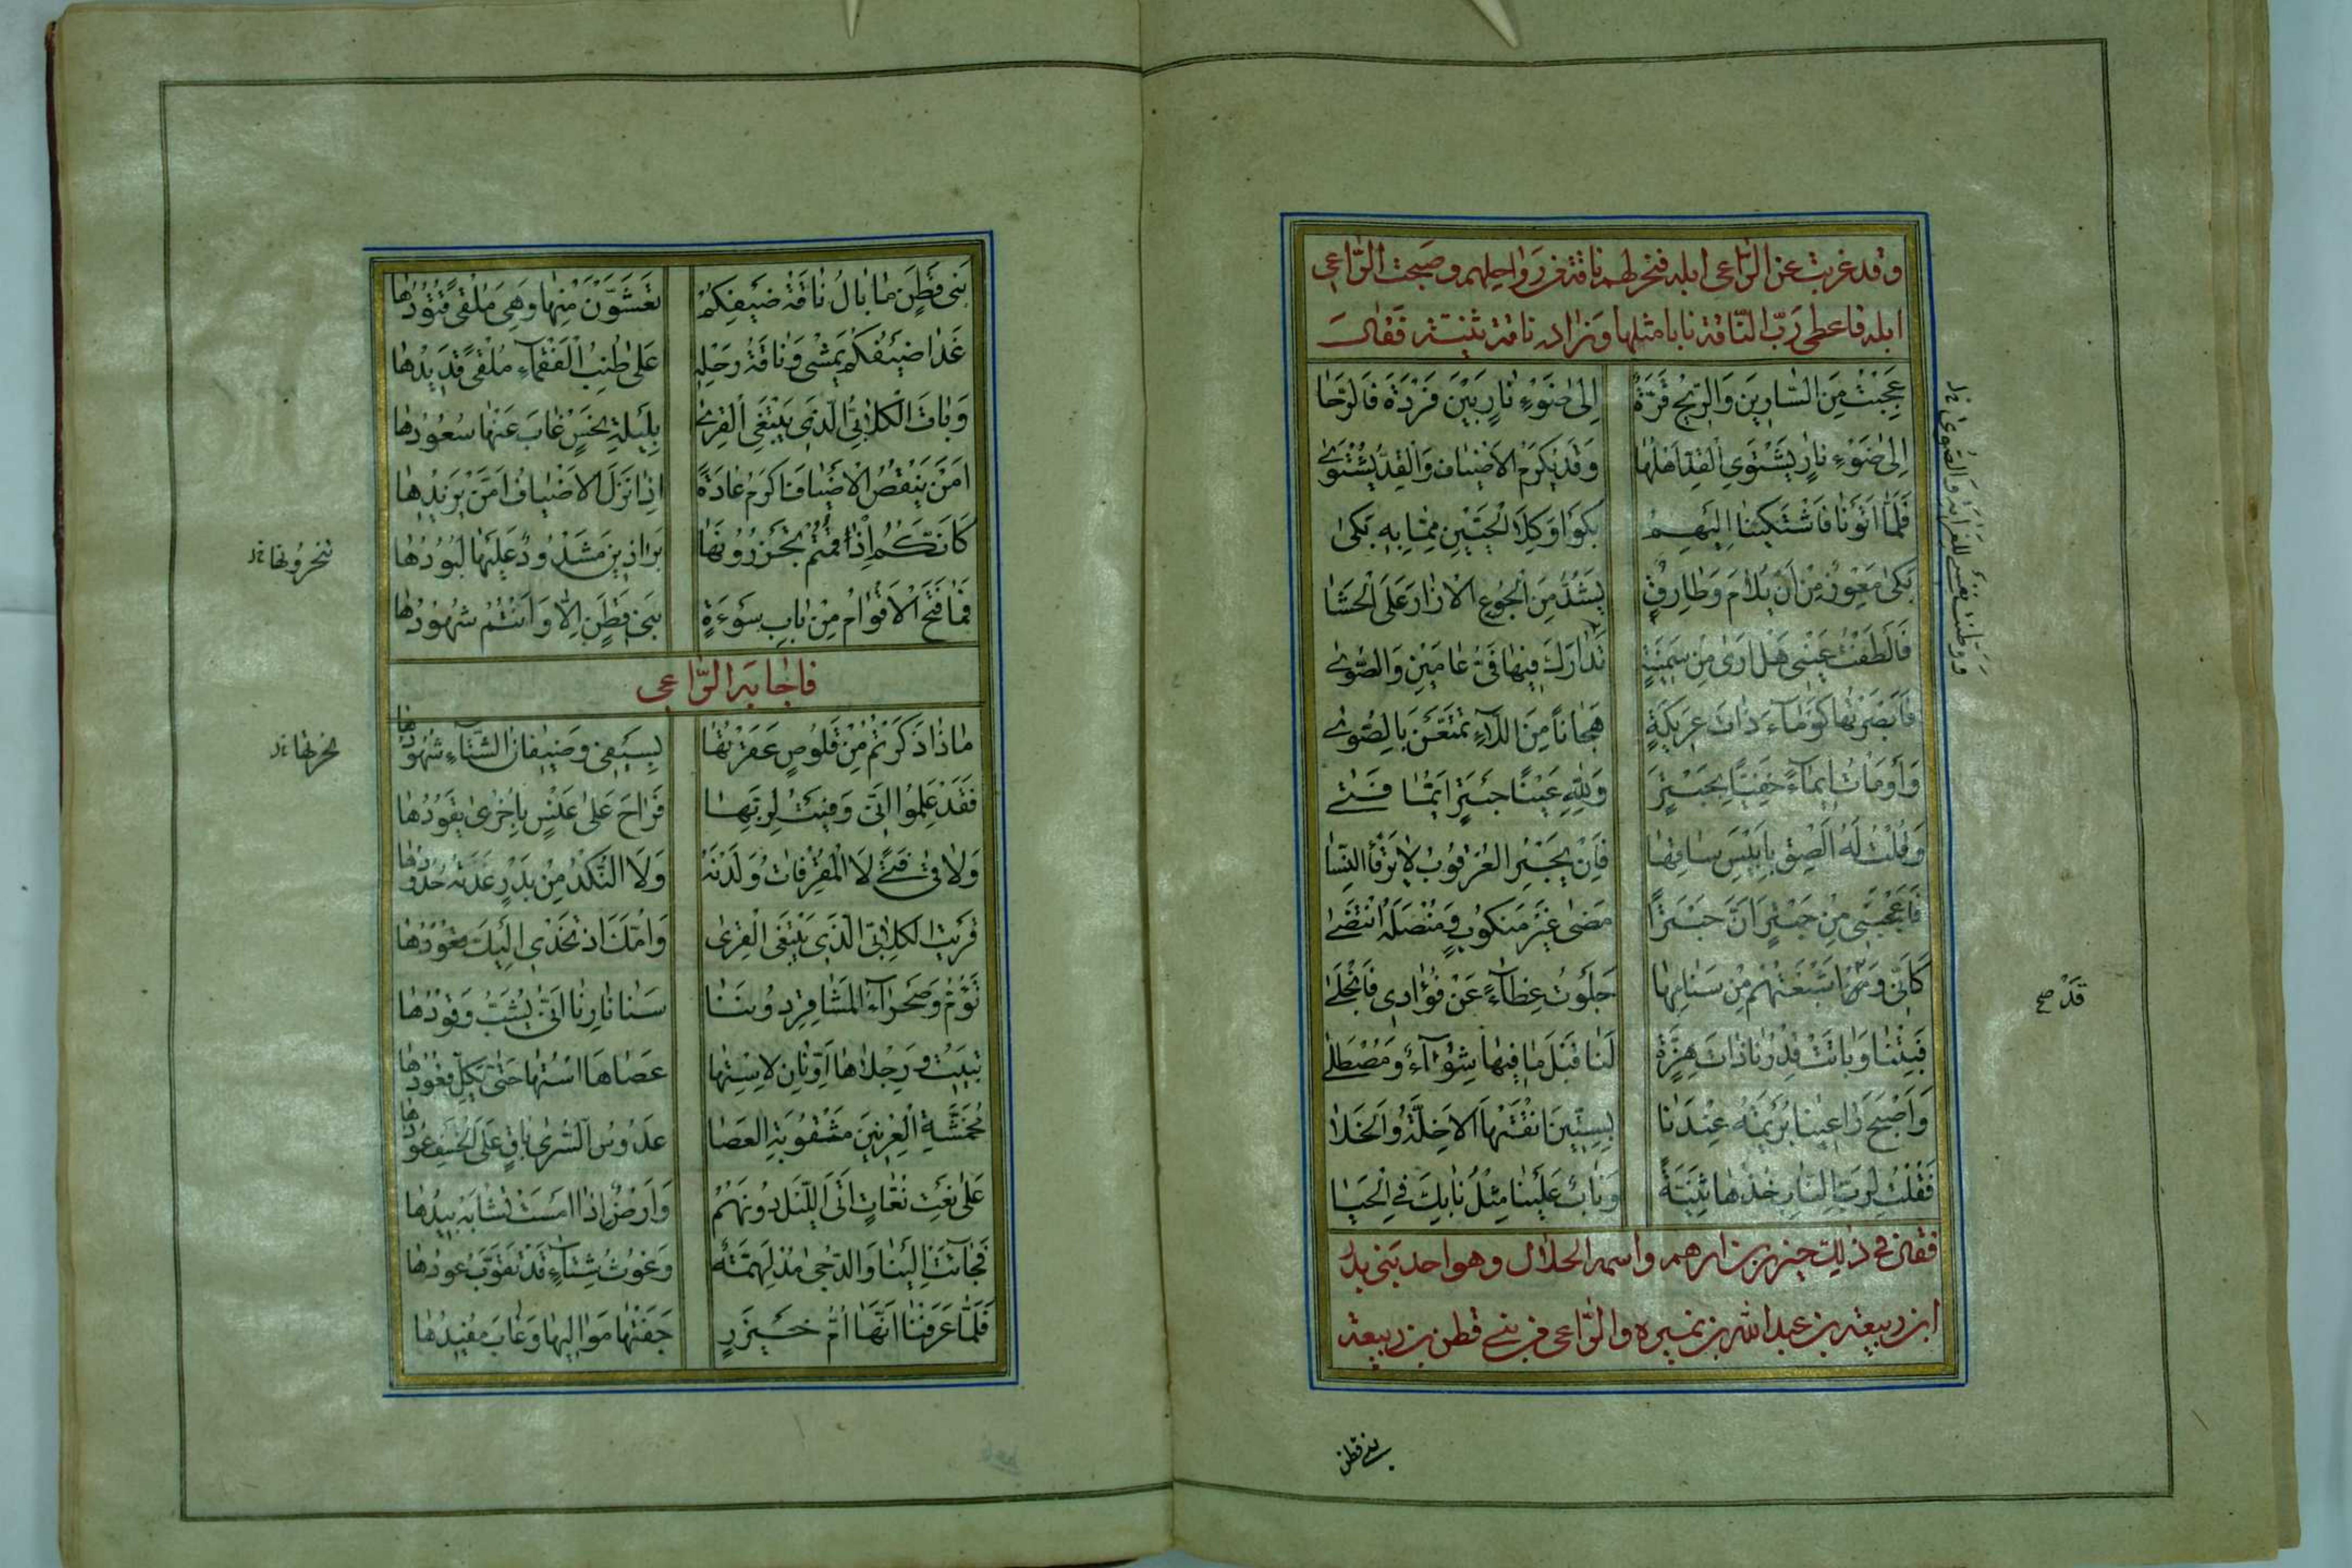 وقد غربت عن الرّاعي ابله فنحر لهم ناقة من رواحلهم وصبحت الرّاعي
ابله فاعطى ربّ النّاقة نابا مثلها وزاده ناقة ثنيّة فقال
عَجِبْتُ مِنَ السّارِينَ وَالرِّيحُ قَرَّةٌ إِلىٰ ضَوْءِ نارٍ بَيْنَ فَرْدَةَ فَالرَّحا
إِلىٰ ضَوْءِ نارٍ يَشْتَوِي القِدَّ أَهْلُها وَقَدْ يُكْرَمُ الأَضْيافُ وَالقِدُّ يُشْتَوىٰ
فَلَمّا أَتَوْنا فَاشْتَكَيْنا إِلَيْهِمُ بَكَوْا وَكِلَا الحَيَّيْنِ مِمّا بِهِ بَكىٰ
بَكىٰ مُعْوِزٌ مِنْ أَنْ يُلامَ وَطارِقٌ يَشُدُّ مِنَ الجُوعِ الإزارَ عَلَى الحَشا
فَأَلْطَفْتُ عَيْنِي هَلْ أَرىٰ مِنْ سَمِينَةٍ تَدارَكَ فِيها نَيُّ عامَيْنِ وَالصُّوىٰ
فَأَبْصَرْتُها كَوْماءَ ذاتَ عَرِيكَةٍ هِجاناً مِنَ اللّاءِ تَمَتَّعْنَ بِالصُّوىٰ
وَأَوْمَأْتُ إِيماءً خَفِيّاً لِحَبْتَرٍ وَلِلّهِ عَيْنا حَبْتَرٍ أَيَّما فَتىٰ
وَقُلْتُ لَهُ أَلْصِقْ بِأَيْبَسِ ساقِها فَإِنْ يَجْبُرِ العُرْقُوبُ لا يَرْقَأُ النَّسا
فَأَعْجَبَنِي مِنْ حَبْتَرٍ أَنَّ حَبْتَراً مَضىٰ غَيْرَ مَنْكُوبٍ وَمُنْصُلَهُ انْتَضىٰ
كَأَنِّي وَقَدْ أَشْبَعْتُهُمْ مِنْ سَنامِها جَلَوْتُ غِطاءً عَنْ فُؤادِي فَانْجَلىٰ
فَبِتْنا وَباتَتْ قِدْرُنا ذاتَ هِزَّةٍ لَنا قَبْلَ ما فِيها شِواءٌ وَمُصْطَلىٰ
وَأَصْبَحَ راعِينا بُرَيْمَةُ عِنْدَنا بِسِتِّينَ أَنْقَتْها الأَخِلَّةُ وَالخَلا
فَقُلْتُ لِرَبِّ النّابِ خُذْها ثَنِيَّةً وَنابٌ عَلَيْنا مِثْلُ نابِكَ فِي الحَيا
فقال في ذلك خنزر بن ارهم واسمه الحلال وهو احد بني بدر
ابن ربيعة بن عبد الله بن نمير والرّاعي من بني قطن بن ربيعة
قَدْ صح
بني قطن
بَنِي قَطَنٍ ما بالُ ناقَةِ ضَيْفِكُمْ تَعَشَّوْنَ مِنْها وَهِيَ مُلْقىً قُتُودُها
غَدا ضَيْفُكُمْ يَمْشِي وَناقَةُ رَحْلِهِ عَلىٰ طُنُبِ الفَقْماءِ مُلْقىً قَدِيدُها
وَباتَ الكِلابِيُّ الَّذِي يَبْتَغِي القِرىٰ بِلَيْلَةِ نَحْسٍ غابَ عَنْها سُعُودُها
أَمَنْ يَنْقُصُ الأَضْيافَ أَكْرَمُ عادَةً إِذا نَزَلَ الأَضْيافُ أَمَّنْ يَزِيدُها
كَأَنَّكُمُ إِذْ قُمْتُمُ تَجْزُرُونَها بَراذِينُ مَشْدُودٌ عَلَيْها لُبُودُها
فَما فَتَحَ الأَقْوامُ مِنْ بابِ سَوْءَةٍ بَنِي قَطَنٍ إِلّا وَأَنْتُمْ شُهُودُها
فاجابه الرّاعي
ماذا ذَكَرْتُمْ مِنْ قَلُوصٍ عَقَرْتُها بِسَيْفِي وَضِيفانُ الشِّتاءِ شُهُودُها
فَقَدْ عَلِمُوا أَنِّي وَفَيْتُ لِرَبِّها فَراحَ عَلىٰ عَنْسٍ بِأُخْرىٰ يَقُودُها
قَرَيْتُ الكِلابِيَّ الَّذِي يَبْتَغِي القِرىٰ وَأُمَّكَ إِذْ تُخْدىٰ إِلَيْكَ قَعُودُها
سَنا نارِنا أَنّىٰ يُشَبُّ وَقُودُها
تَبِيتُ وَرِجْلاها أَوانانِ لِاسْتِها عَصاها اسْتُها حَتّىٰ يَكِلَّ قَعُودُها
وَأَرْضٌ إِذا أَمْسَتْ تَشابَهُ بِيدُها
فَجاءَتْ إِلَيْنا وَالدُّجىٰ مُدْلَهِمَّةٌ
فَلَمّا عَرَفْنا أَنَّها أُمُّ خَنْزَرٍ جَفَتْها مَوالِيها وَغابَ مُفِيدُها
تنحرونها
نحرتها